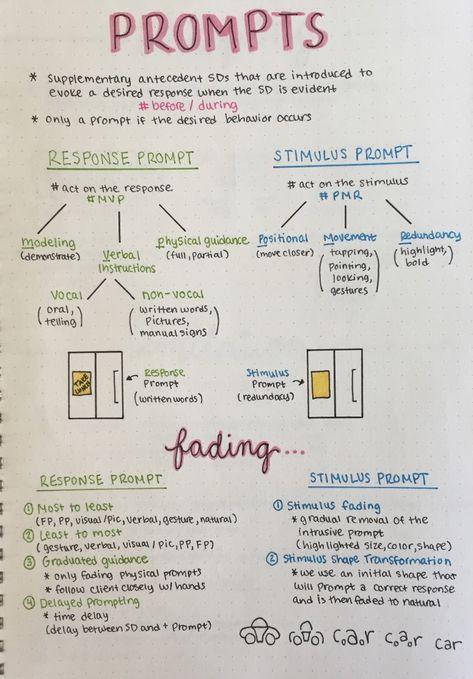 PROMPTS
* Supplementary antecedent SDs that are introduced to
evoke a desired response when the SD is evident
# before / during
* only a prompt if the desired behavior occurs
RESPONSE PROMPT
# act on the response
#MVP
Modeling
(demonstrate)
Verbal
Instructions
Physical guidance
(full, partial)
vocal
(oral,
telling)
non-vocal
(written words,
Pictures,
manual signs)
STIMULUS PROMPT
# act on the stimulus
# PMR
Positional
(move closer)
Movement
(tapping,
pointing,
looking,
gestures)
Redundancy
(highlight,
bold)
TAKE
Response
Prompt
(written words)
Stimulus
Prompt
(redundacy)
fading...
RESPONSE PROMPT
① Most to least
(FP, PP, visual/Pic, verbal, gesture, natural)
② Least to most
(gesture, verbal, visual / pic, PP, FP)
③ Graduated guidance
* only fading physical prompts
* follow client closely w/ hands
④ Delayed Prompting
* time delay
(delay between SD and + prompt)
STIMULUS PROMPT
① Stimulus fading
* gradual removal of the
intrusive prompt
(highlighted size, color, shape)
② Stimulus Shape Transformation
* we use an initial shape that
will prompt a correct response
and is then faded to natural
car car car